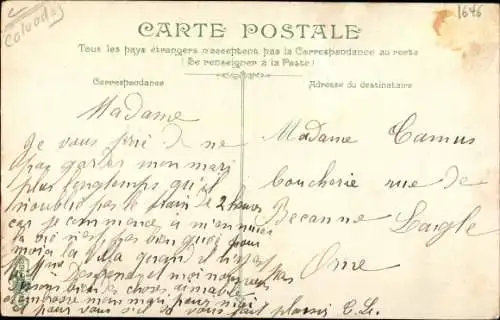 Calvados
1646
CARTE POSTALE
Tous les pays étrangers n'acceptent pas la Correspondance au recto
(Se renseigner à la Poste)
Correspondance
Adresse du destinataire
Madame
Je vous prie de ne
pas garder mon mari
plus longtemps qu'il
n'oublie pas le train de 2 heures
car je commence à m'ennuier
la vie n'est pas bien gaie pour
moi a la villa quand il n'est pas
embrasse mon mari pour moi
et pour vous s'il vous fait plaisir C. L.
Madame Camus
boucherie rue de
Becanne Laigle
Orne